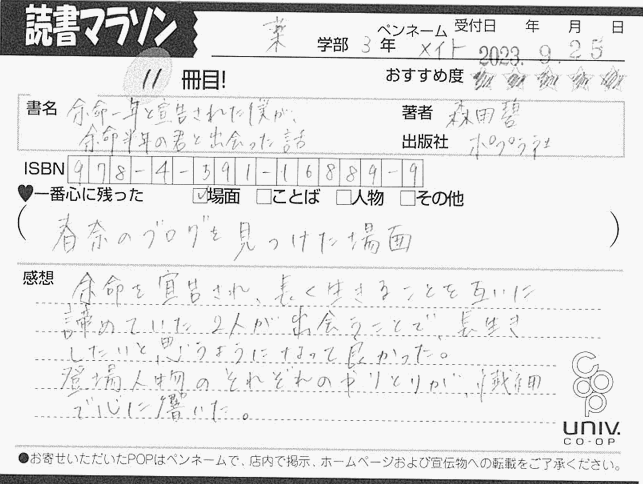 読書マラソン
薬 学部 3年 ペンネーム メイト 受付日 年 月 日 2023.9.25
11 冊目! おすすめ度
書名 余命一年と宣告された僕が、
余命半年の君と出会った話
著者 森田碧
出版社 ポプラ社
ISBN 978-4-591-16889-9
♥一番心に残った ☑場面 □ことば □人物 □その他
(春奈のブログを見つけた場面)
感想 余命を宣告され、長く生きることを互いに
諦めていた2人が出会うことで、長生き
したいと思うようになって良かった。
登場人物のそれぞれのやりとりが、繊細
で心に響いた。
coop
UNIV.
CO-OP
●お寄せいただいたPOPはペンネームで、店内で掲示、ホームページおよび宣伝物への転載をご了承ください。